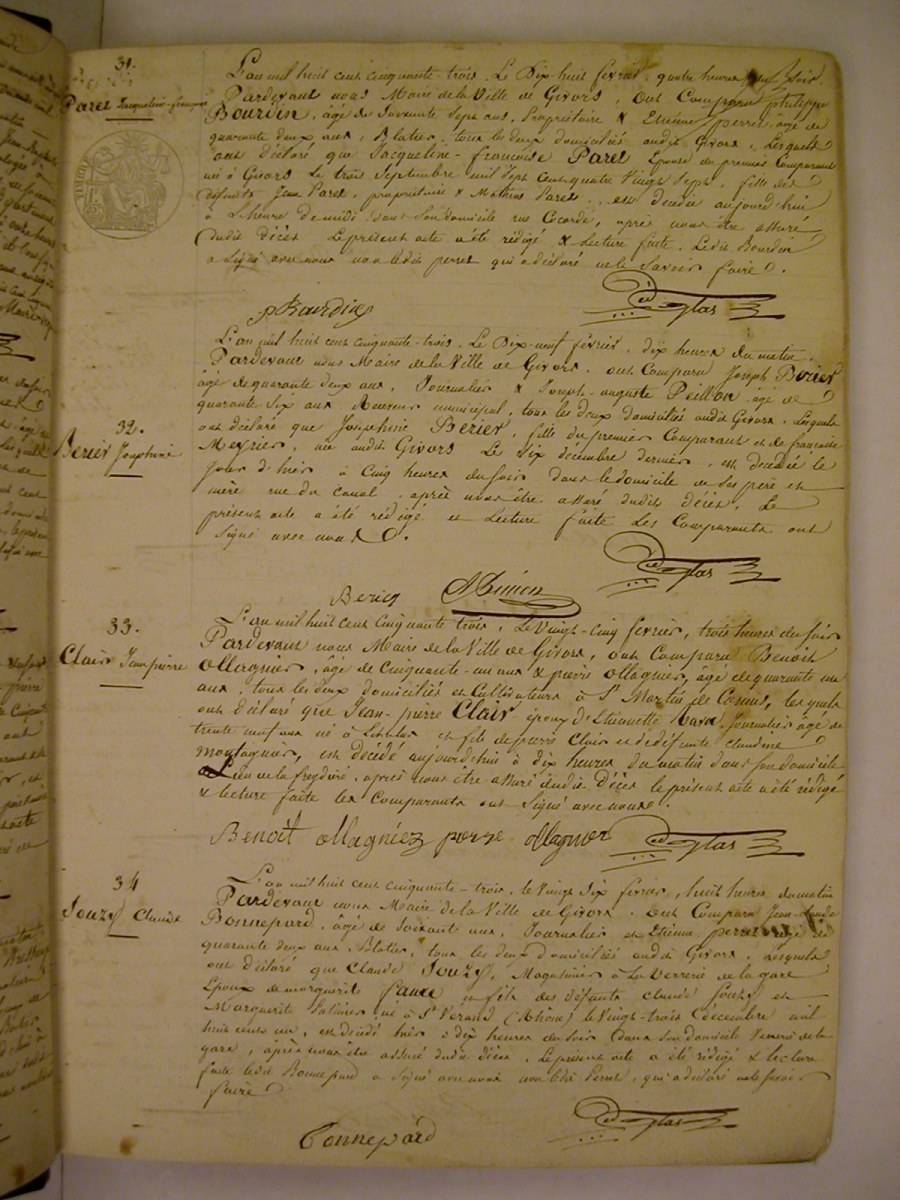 31.
Paret Jacqueline-françoise
L'an mil huit cent cinquante-trois. Le Dix huit février, quatre heures du soir.
Pardevant nous Maire de la Ville de Givors, Ont Comparu philippe
Bourdin, âgé de Soixante Sept ans, Propriétaire & Etienne perret, âgé de
quarante deux ans, Blatier, tous les deux domiciliés audit Givors, Lesquels
ont déclaré que Jacqueline-françoise Paret Epouse du premier Comparant
né à Givors Le trois Septembre mil Sept Cent quatre Vingt Sept, fille des
défunts Jean Paret, propriétaire & Paret, est décédée aujourd'hui
à L'heure de midi dans Son domicile rue, après nous être assuré
dudit Décès Le présent acte a été rédigé & Lecture faite. Ledit Bourdin
a Signé avec nous non ledit perret qui a déclaré ne le Savoir faire.
pBourdin
32.
Berier Josephine
L'an mil huit cent cinquante-trois. Le Dix-neuf février, dix heures du matin.
Pardevant nous Maire de la Ville de Givors, ont Comparu Joseph Berier
âgé de quarante deux ans, Journalier & Joseph-auguste Peillon, âgé de
quarante Six ans Receveur municipal, tous les deux domiciliés audit Givors, Lesquels
ont déclaré que Josephine Berier, fille du premier Comparant et de françoise
Meyrier, née audit Givors Le Six décembre dernier, est décédée le
jour d'hier à Cinq heures du soir dans le domicile de Ses père et
mère rue du canal, après nous être assuré dudit Décès, Le
présent acte a été rédigé et Lecture faite Les Comparants ont
Signé avec nous.
33.
Clair Jean pierre
L'an mil huit Cent Cinquante trois, Le Vingt-Cinq février, trois heures du soir
Pardevant nous Maire de la Ville de Givors, ont Comparu Benoit
Ollagnier, âgé de Cinquante-un ans & pierre Ollagnier, âgé de quarante un
ans, tous les deux domiciliés et Cultivateurs à St Martin de Cornas, lesquels
ont déclaré que Jean-pierre Clair, époux d', Journalier âgé de
trente neuf ans né à et fils de pierre Clair et de défunte claudine
Montagnier, est décédé aujourd'hui à dix heures du matin dans son domicile
Lieu de la freydière, après nous être assuré dudit Décès le présent acte a été rédigé
& lecture faite les Comparants ont Signé avec nous.
Benoit ollagniez
34
Jouzy Claude
L'an mil huit cent cinquante-trois, le Vingt Six février, huit heures du matin
Pardevant nous Maire de la Ville de Givors, ont Comparu Jean-Claude
Bonnepard, âgé de Soixante ans, Journalier et Etienne perret, âgé de
quarante deux ans, Blatier, tous les deux domiciliés audit Givors, Lesquels
ont déclaré que Claude Jouzy, Magasinier à La Verrerie de la gare
Epoux de marguerite et fils des défunts claude Jouzy et
Marguerite, né à St Verand (Rhône) le Vingt-trois décembre mil
huit cent un, est décédé hier à dix heures du soir dans son domicile Verrerie de la
gare, après nous être assuré dudit décès. Le présent acte a été rédigé & lecture
faite ledit Bonnepard a Signé avec nous non ledit Perret, qui a déclaré ne le savoir
faire.
Bonnepard